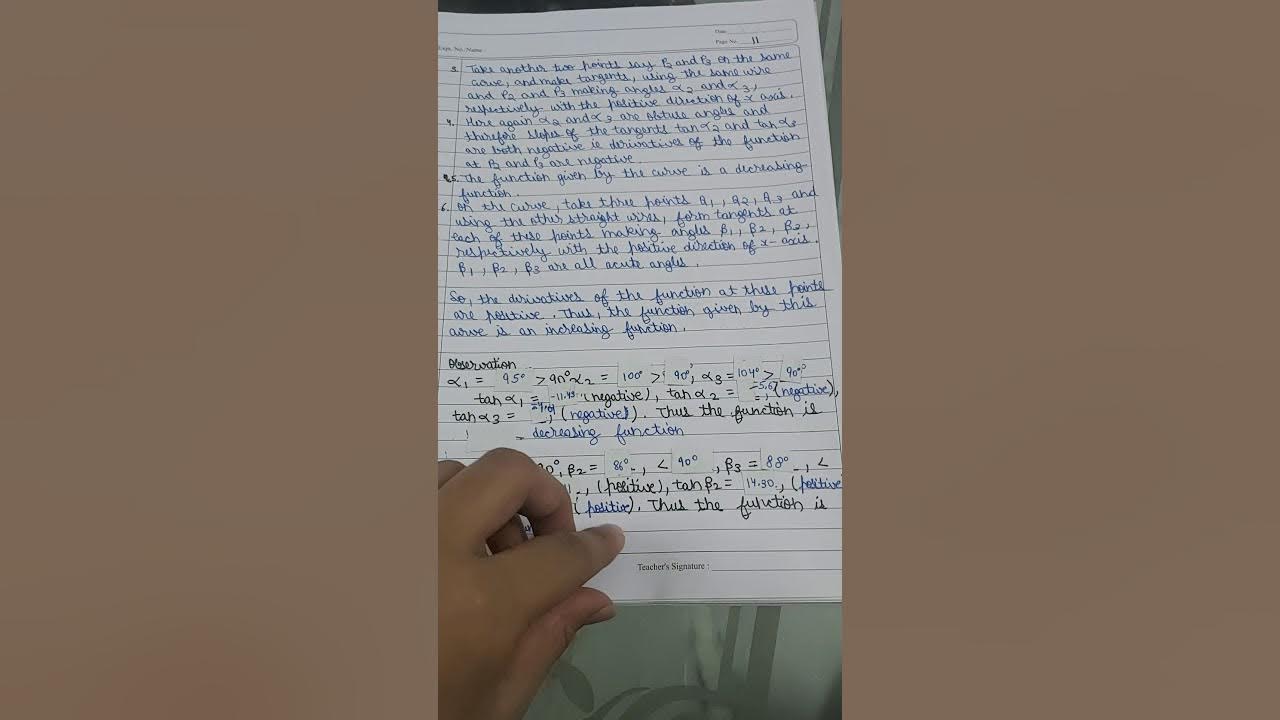 Date
Expt. No./Name
Page No. 11
3. Take another two points say P2 and P3 on the same
curve, and make tangents, using the same wire
and P2 and P3 making angles α2 and α3,
respectively with the positive direction of x axis.
4. Here again α2 and α3 are obtuse angles and
therefore slopes of the tangents tan α2 and tan α3
are both negative ie derivatives of the function
at P2 and P3 are negative.
5. The function given by the curve is a decreasing
function.
6. On the curve, take three points Q1, Q2, Q3 and
using the other straight wires, form tangents at
each of these points making angles β1, β2, β3,
respectively with the positive direction of x-axis.
β1, β2, β3 are all acute angles.
So, the derivatives of the function at these points
are positive. Thus, the function given by this
curve is an increasing function.
Observation
α1 = 95° > 90° α2 = 100° > 90°, α3 = 104° > 90°
tan α1 = -11.43 (negative), tan α2 = -5.67 (negative),
tan α3 = , (negative). Thus the function is
decreasing function
90°, β2 = 86°, < 90°, β3 = 88°, <
, (positive), tan β2 = 14.30, (positive
(positive). Thus the function is
Teacher's Signature :